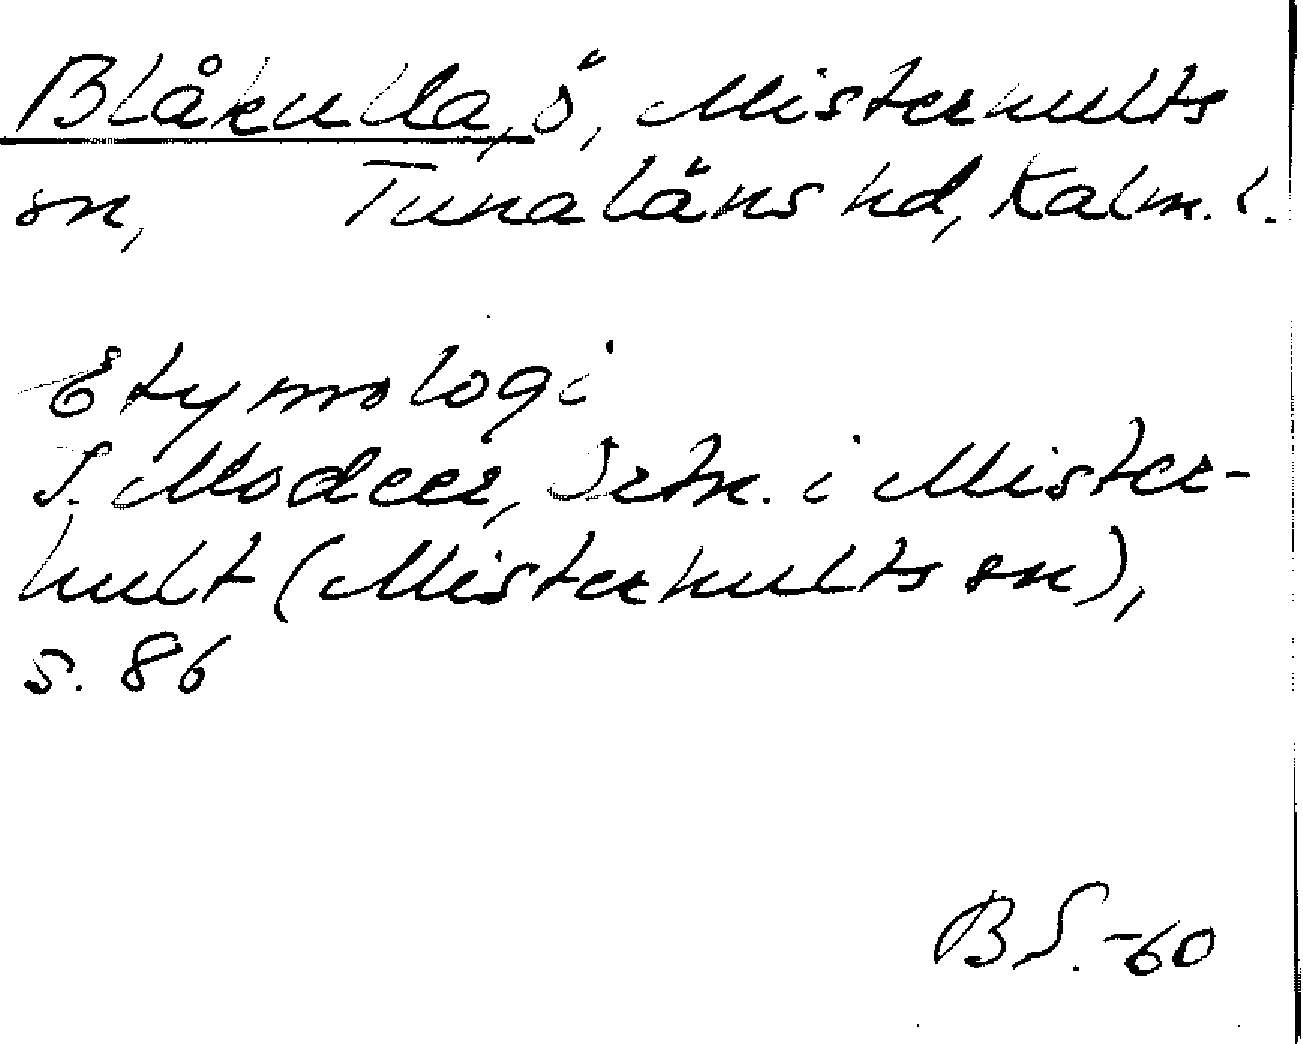 Blåkulla, ö, Misterhults
sn, Tunaläns hd, Kalm. l.
Etymologi
I. Modeer, Ortn. i Mister-
hult (Misterhults sn),
s. 86
BS.-60